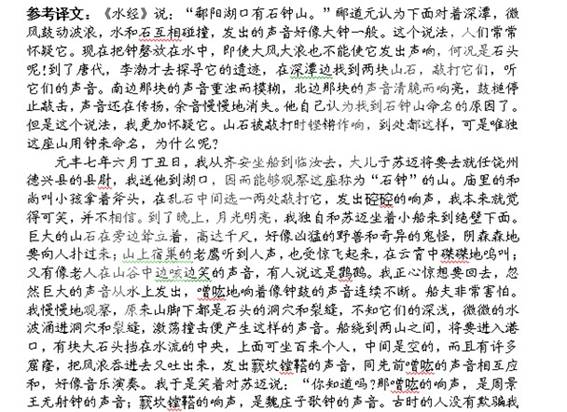 参考译文：《水经》说：“鄱阳湖口有石钟山。”郦道元认为下面对着深潭，微
风鼓动波浪，水和石互相碰撞，发出的声音好像大钟一般。这个说法，人们常常
怀疑它。现在把钟磬放在水中，即使大风大浪也不能使它发出声响，何况是石头
呢！到了唐代，李渤才去探寻它的遗迹，在深潭边找到两块山石，敲打它们，听
它们的声音。南边那块的声音重浊而模糊，北边那块的声音清脆而响亮，鼓槌停
止敲击，声音还在传扬，余音慢慢地消失。他自己认为找到石钟山命名的原因了。
但是这个说法，我更加怀疑它。山石被敲打时铿锵作响，到处都这样，可是唯独
这座山用钟来命名，为什么呢？
元丰七年六月丁丑日，我从齐安坐船到临汝去，大儿子苏迈将要去就任饶州
德兴县的县尉，我送他到湖口，因而能够观察这座称为“石钟”的山。庙里的和
尚叫小孩拿着斧头，在乱石中间选一两处敲打它，发出硿硿的响声，我本来就觉
得可笑，并不相信。到了晚上，月光明亮，我独自和苏迈坐着小船来到绝壁下面。
巨大的山石在旁边耸立着，高达千尺，好像凶猛的野兽和奇异的鬼怪，阴森森地
要向人扑过来；山上宿巢的老鹰听到人声，也受惊飞起来，在云霄中磔磔地鸣叫；
又有像老人在山谷中边咳边笑的声音，有人说这是鹳鹤。我正心惊想要回去，忽
然巨大的声音从水上发出，噌吰地响着像钟鼓的声音连续不断。船夫非常害怕。
我慢慢地观察，原来山脚下都是石头的洞穴和裂缝，不知它们的深浅，微微的水
波涌进洞穴和裂缝，激荡撞击便产生这样的声音。船绕到两山之间，将要进入港
口，有块大石头挡在水流的中央，上面可坐百来个人，中间是空的，而且有许多
窟窿，把风浪吞进去又吐出来，发出窾坎镗鞳的声音，同先前噌吰的声音相互应
和，好像音乐演奏。我于是笑着对苏迈说：“你知道吗？那噌吰的响声，是周景
王无射钟的声音；窾坎镗鞳的响声，是魏庄子歌钟的声音。古时的人没有欺骗我